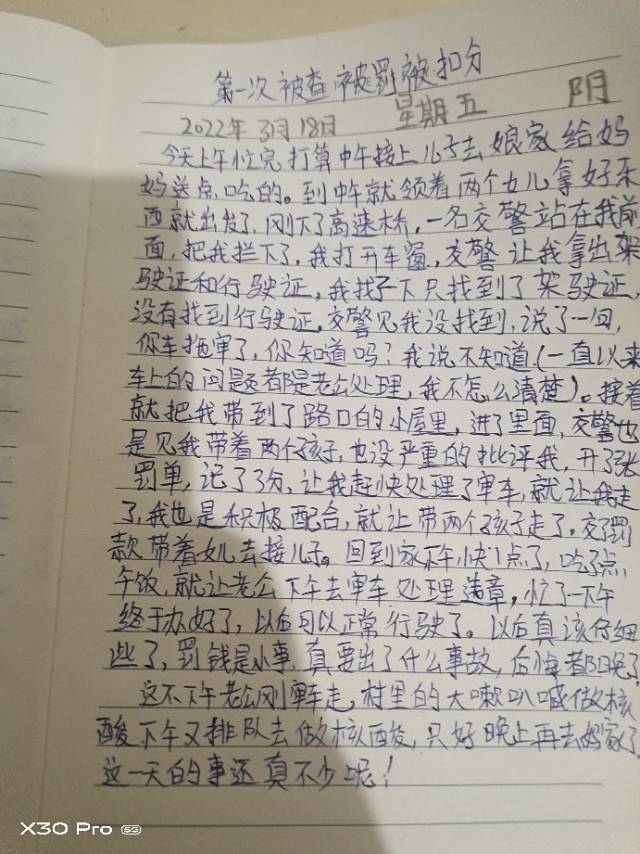 第一次被查被罚被扣分
2022年3月18日 星期五 阴
今天上午忙完打算中午接上儿子去娘家给妈
妈送点吃的。到中午就领着两个女儿拿好东
西就出发了,刚下了高速桥,一名交警站在我前
面,把我拦下了,我打开车窗,交警让我拿出驾
驶证和行驶证,我找了下只找到了驾驶证,
没有找到行驶证,交警见我没找到,说了一回,
你车拖审了,你知道吗?我说不知道(一直以来
车上的问题都是老公处理,我不怎么清楚)。接着
就把我带到了路口的小屋里,进了里面,交警也
是见我带着两个孩子,也没严重的批评我,开了张
罚单,记了3分,让我赶快处理了审车,就让我走
了,我也是积极配合,就让带两个孩子走了。交了罚
款带着女儿去接儿子。回到家下午快1点了,吃了点
午饭,就让老公下午去审车处理违章,忙了一下午
终于办好了,以后可以正常行驶了。以后真该仔细
些了,罚钱是小事,真要出了什么事故,后悔都晚了
这不下午老公刚审车走,村里的大喇叭喊做核
酸下午又排队去做核酸,只好晚上再去妈家了
这一天的事还真不少呢!
X30 Pro 5G